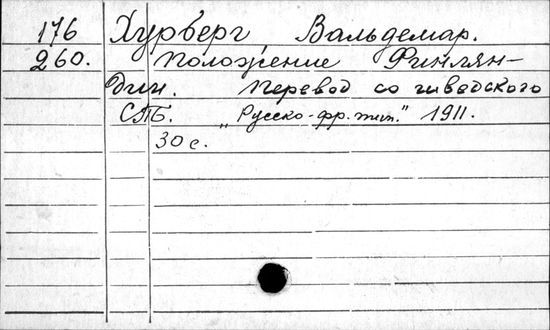 176 Хурберг Вальдемар.
260. Положение Финлян-
дии. Перевод со шведского
СПБ. „Русско-фр. тип." 1911.
30 с.